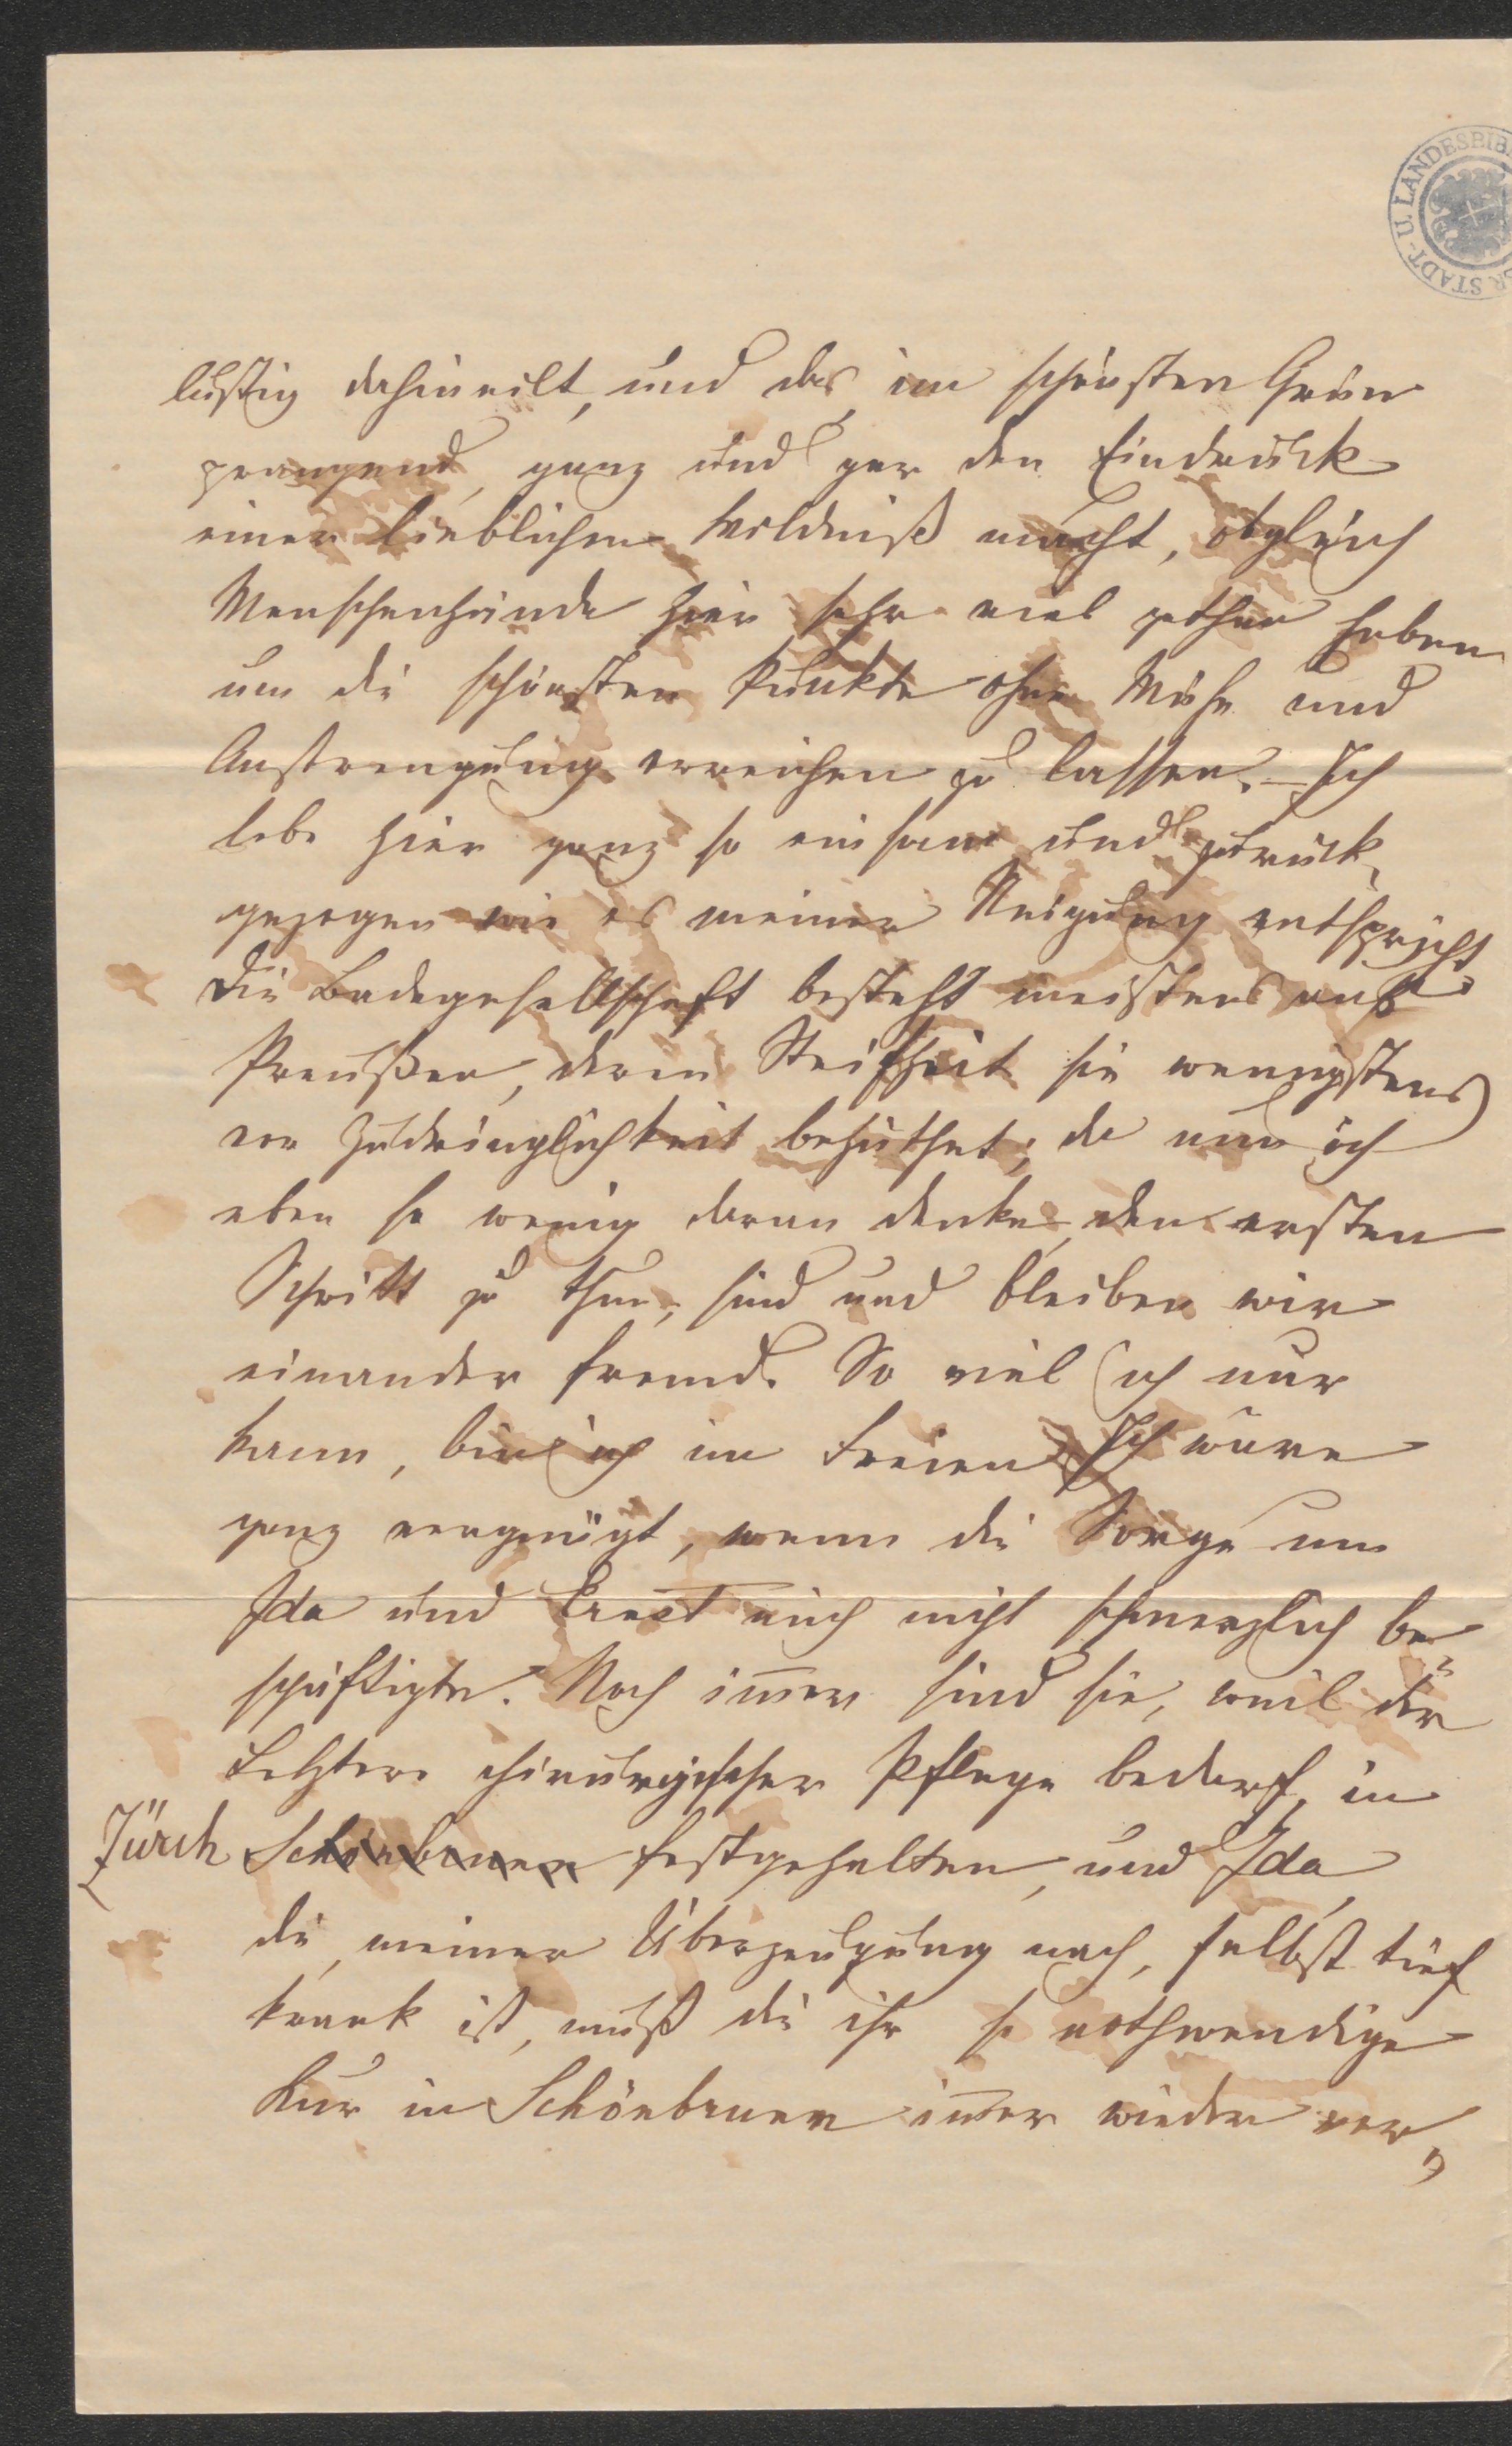 STADT- U. LANDESBIB
lustig dahineilt, und das, im schönsten Grün
prangend, ganz und gar den Eindruck
einer lieblichen Wildniß macht, obgleich
Menschenhände hier sehr viel gethan haben
um die schönsten Punkte ohne Mühe und
Anstrengung erreichen zu lassen. – Ich
lebe hier ganz so einsam und zurück,
gezogen wie es meiner Neigung entspricht.
Die Badegesellschaft besteht meistens aus
Preußen, deren Steifheit sie wenigstens
vor Zudringlichkeit behüthet; da nun ich
eben so wenig daran denke, den ersten
Schritt zu thun, sind und bleiben wir
einander fremd. So viel ich nur
kann, bin ich im Freien. Ich wäre
ganz vergnügt, wenn die Sorge um
Ida und Ernst mich nicht schmerzlich be-
schäftigte. Noch imer sind sie, weil der
Letztere chirurgischer Pflege bedarf, in
Zürch Schönbrunn festgehalten, und Ida,
die, meiner Überzeugung nach, selbst tief
krank ist, muß die ihr so nothwendige
Kur in Schönbrunn imer wieder ver,